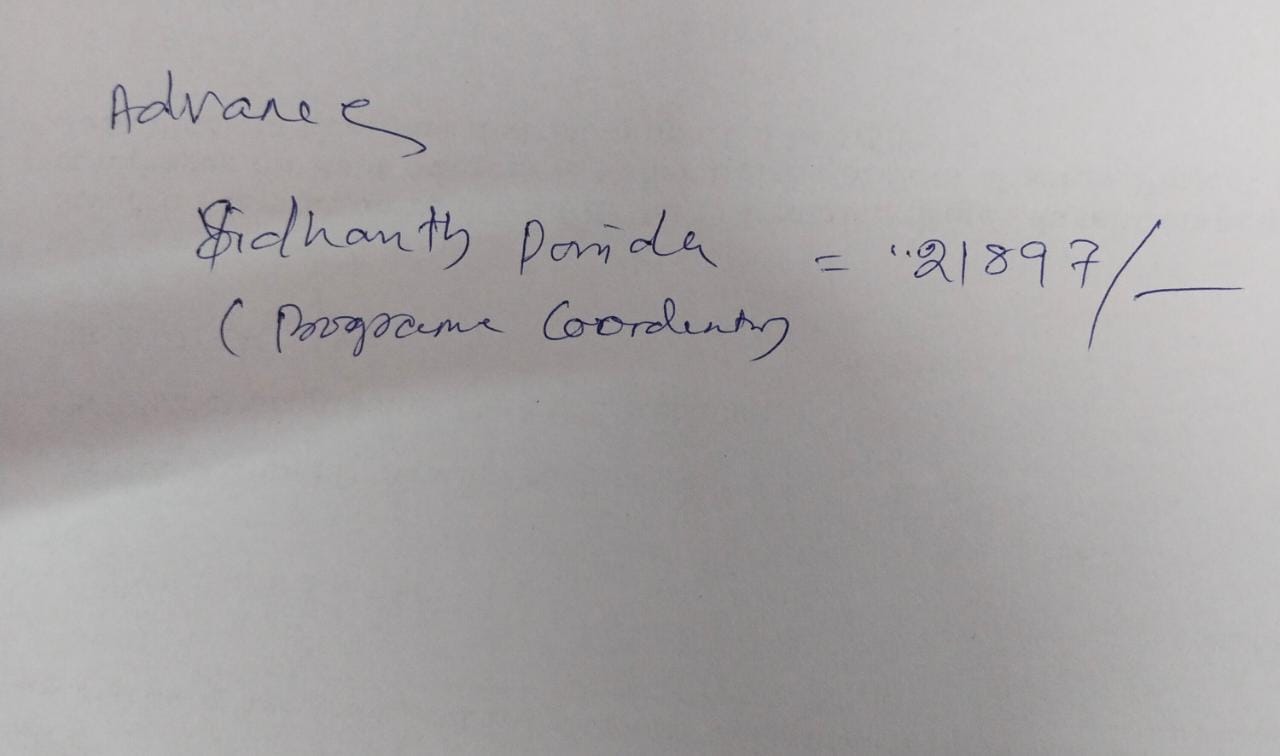 Advance
Sidhanth = 21897/-
(Programe Coordentor